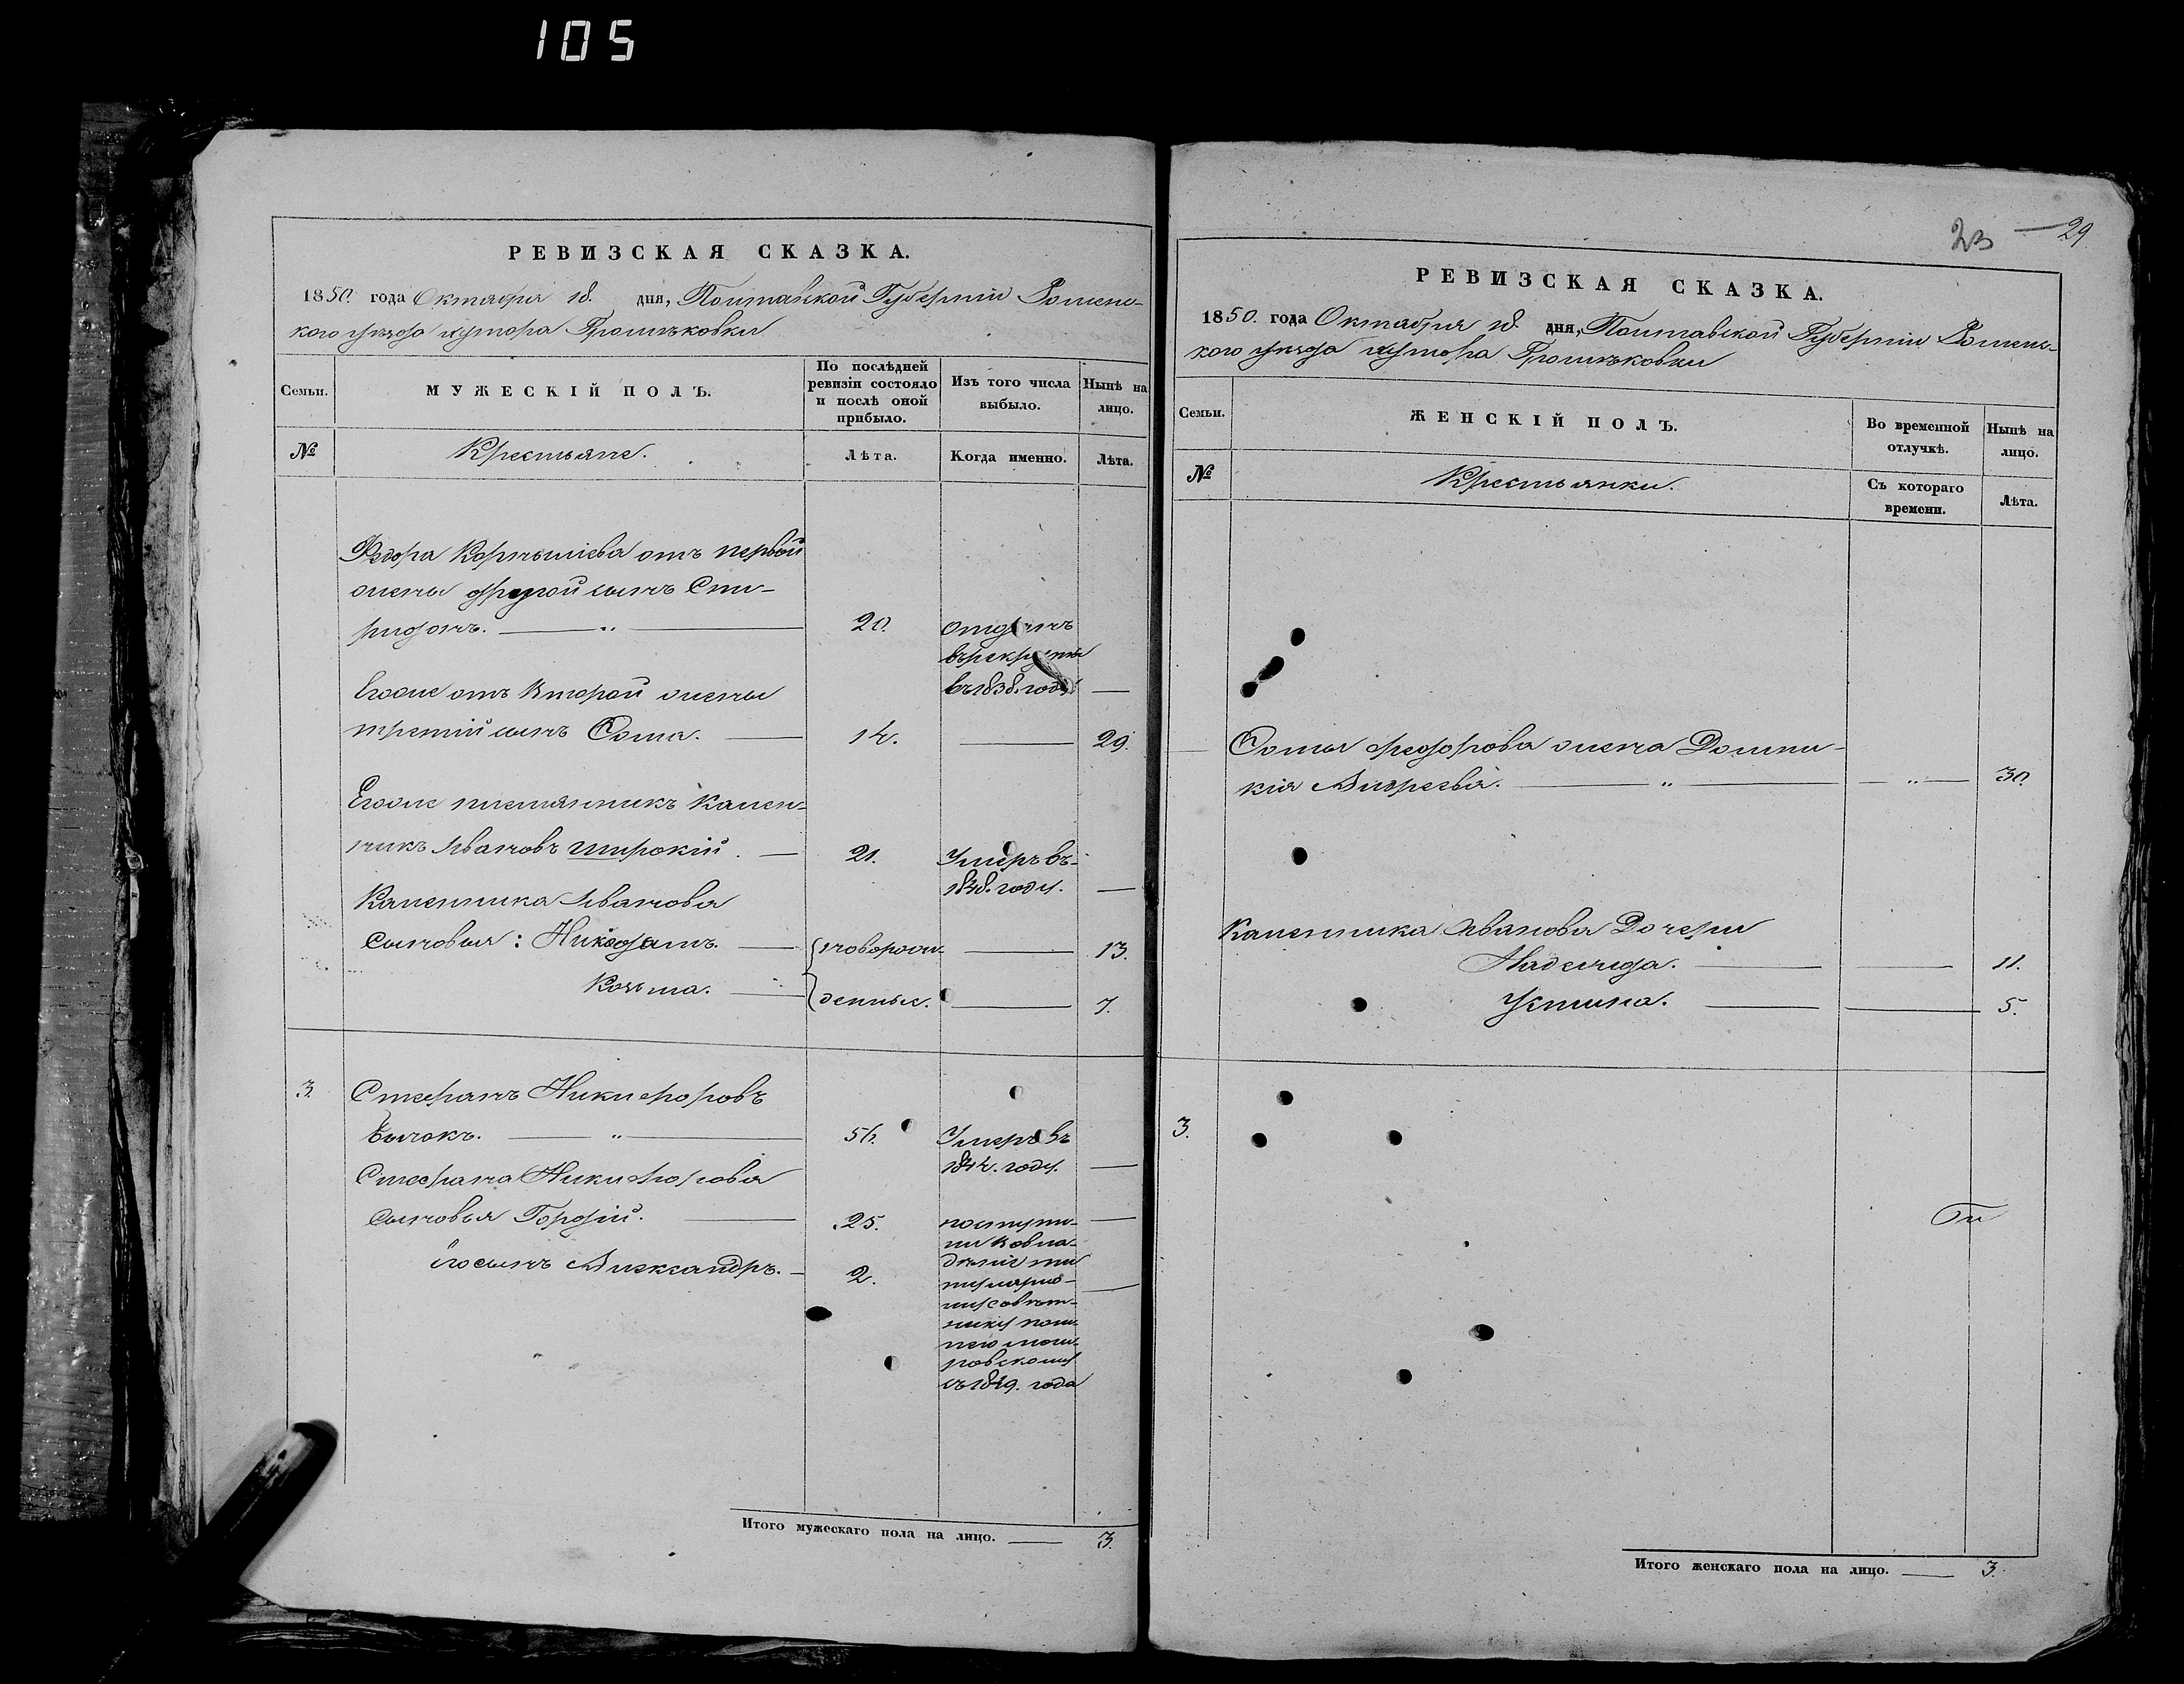 105
РЕВИЗСКАЯ СКАЗКА.
1850. года Октября 18. дня, Полтавской Губерніи Ромен-
кого уѣзда хутора
Семьи.
МУЖЕСКІЙ ПОЛЪ.
По послѣдней ревизіи состояло и послѣ оной прибыло.
Изъ того числа выбыло.
Нынѣ на лицо.
№
Крестьяне.
Лѣта.
Когда именно.
Лѣта.
Федора Корнѣліева отъ первой
жены другой сынъ Спи-
ридонъ. 20. отданъ
въ рекруты
въ 1838. годѣ
Егоже отъ Второй жены
третій сынъ Фома. 14. 29.
Егоже племянникъ Кален-
никъ Ивановъ Широкій. 21. Умеръ въ
1848. году.
Каленника Иванова
Сыновья: Никодимъ. новорож- 13.
Козьма. денные. 7.
3. Стефанъ Никифоровъ
Бычокъ. 56. Умеръ въ
1844. году.
Стефана Никифорова
Сыновья Гордій. 25. поступи-
ли Во вла-
Егосынъ Александръ. 2. дѣніе ти
тулярно-
му Совѣт-
нику
ровскому
съ 1849. года
Итого мужескаго пола на лицо. 3.
23 29
РЕВИЗСКАЯ СКАЗКА.
1850. года Октября 18. дня, Полтавской Губерніи Ромен-
кого уѣзда хутора
Семьи.
ЖЕНСКІЙ ПОЛЪ.
Во временной отлучкѣ.
Нынѣ на лицо.
№
Крестьянки.
Съ котораго времени.
Лѣта.
Фомы Федорова жена Домни-
кія Андреева. 30.
Каленника Иванова Дочери
Надежда. 11.
Устина. 5.
3.
Итого женскаго пола на лицо. 3.